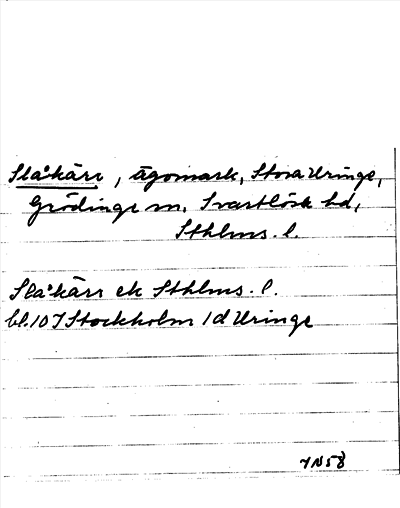 Slåkärr, ägomark, Stora Uringe,
Grödinge sn, Svartlösa hd,
Sthlms. l.
Slåkärr ek Sthlms. l.
bl. 10 I Stockholm 1d Uringe